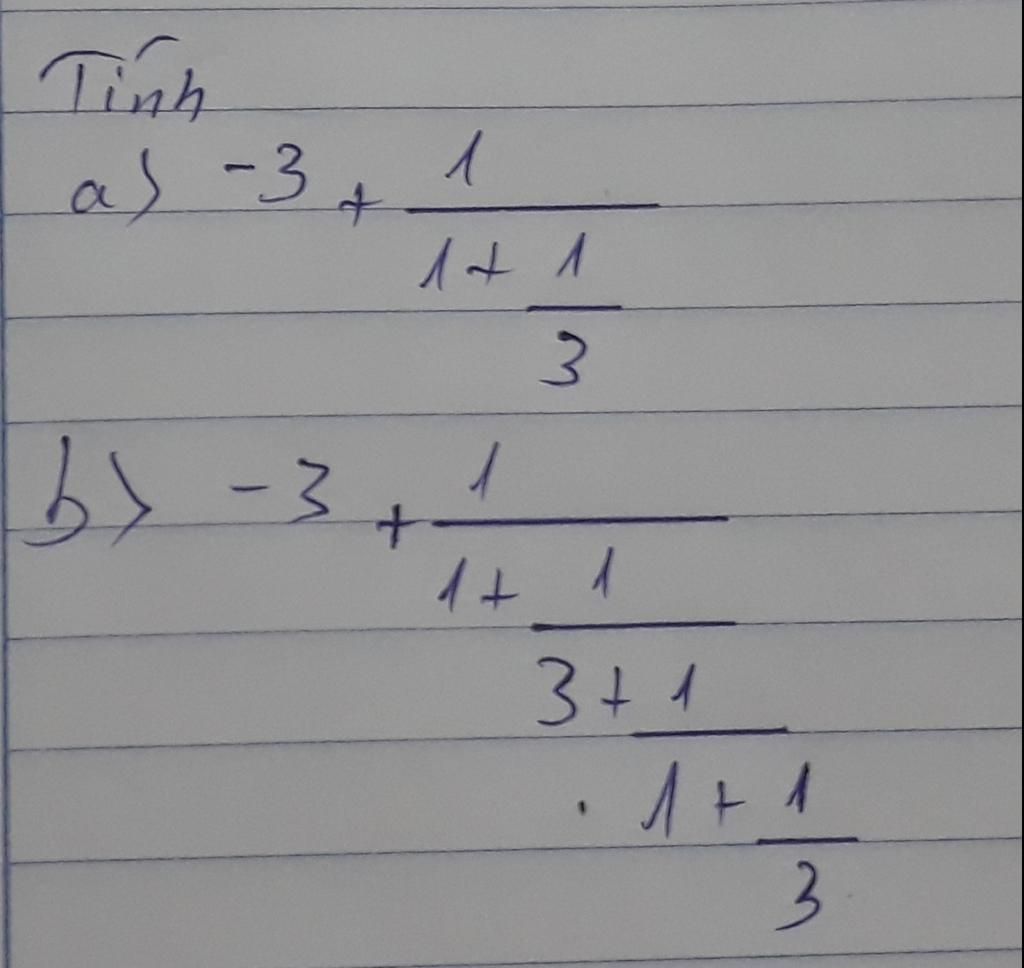 Tính
a) -3 + 1
1 + 1
3
b) -3 + 1
1 + 1
3 + 1
1 + 1
3